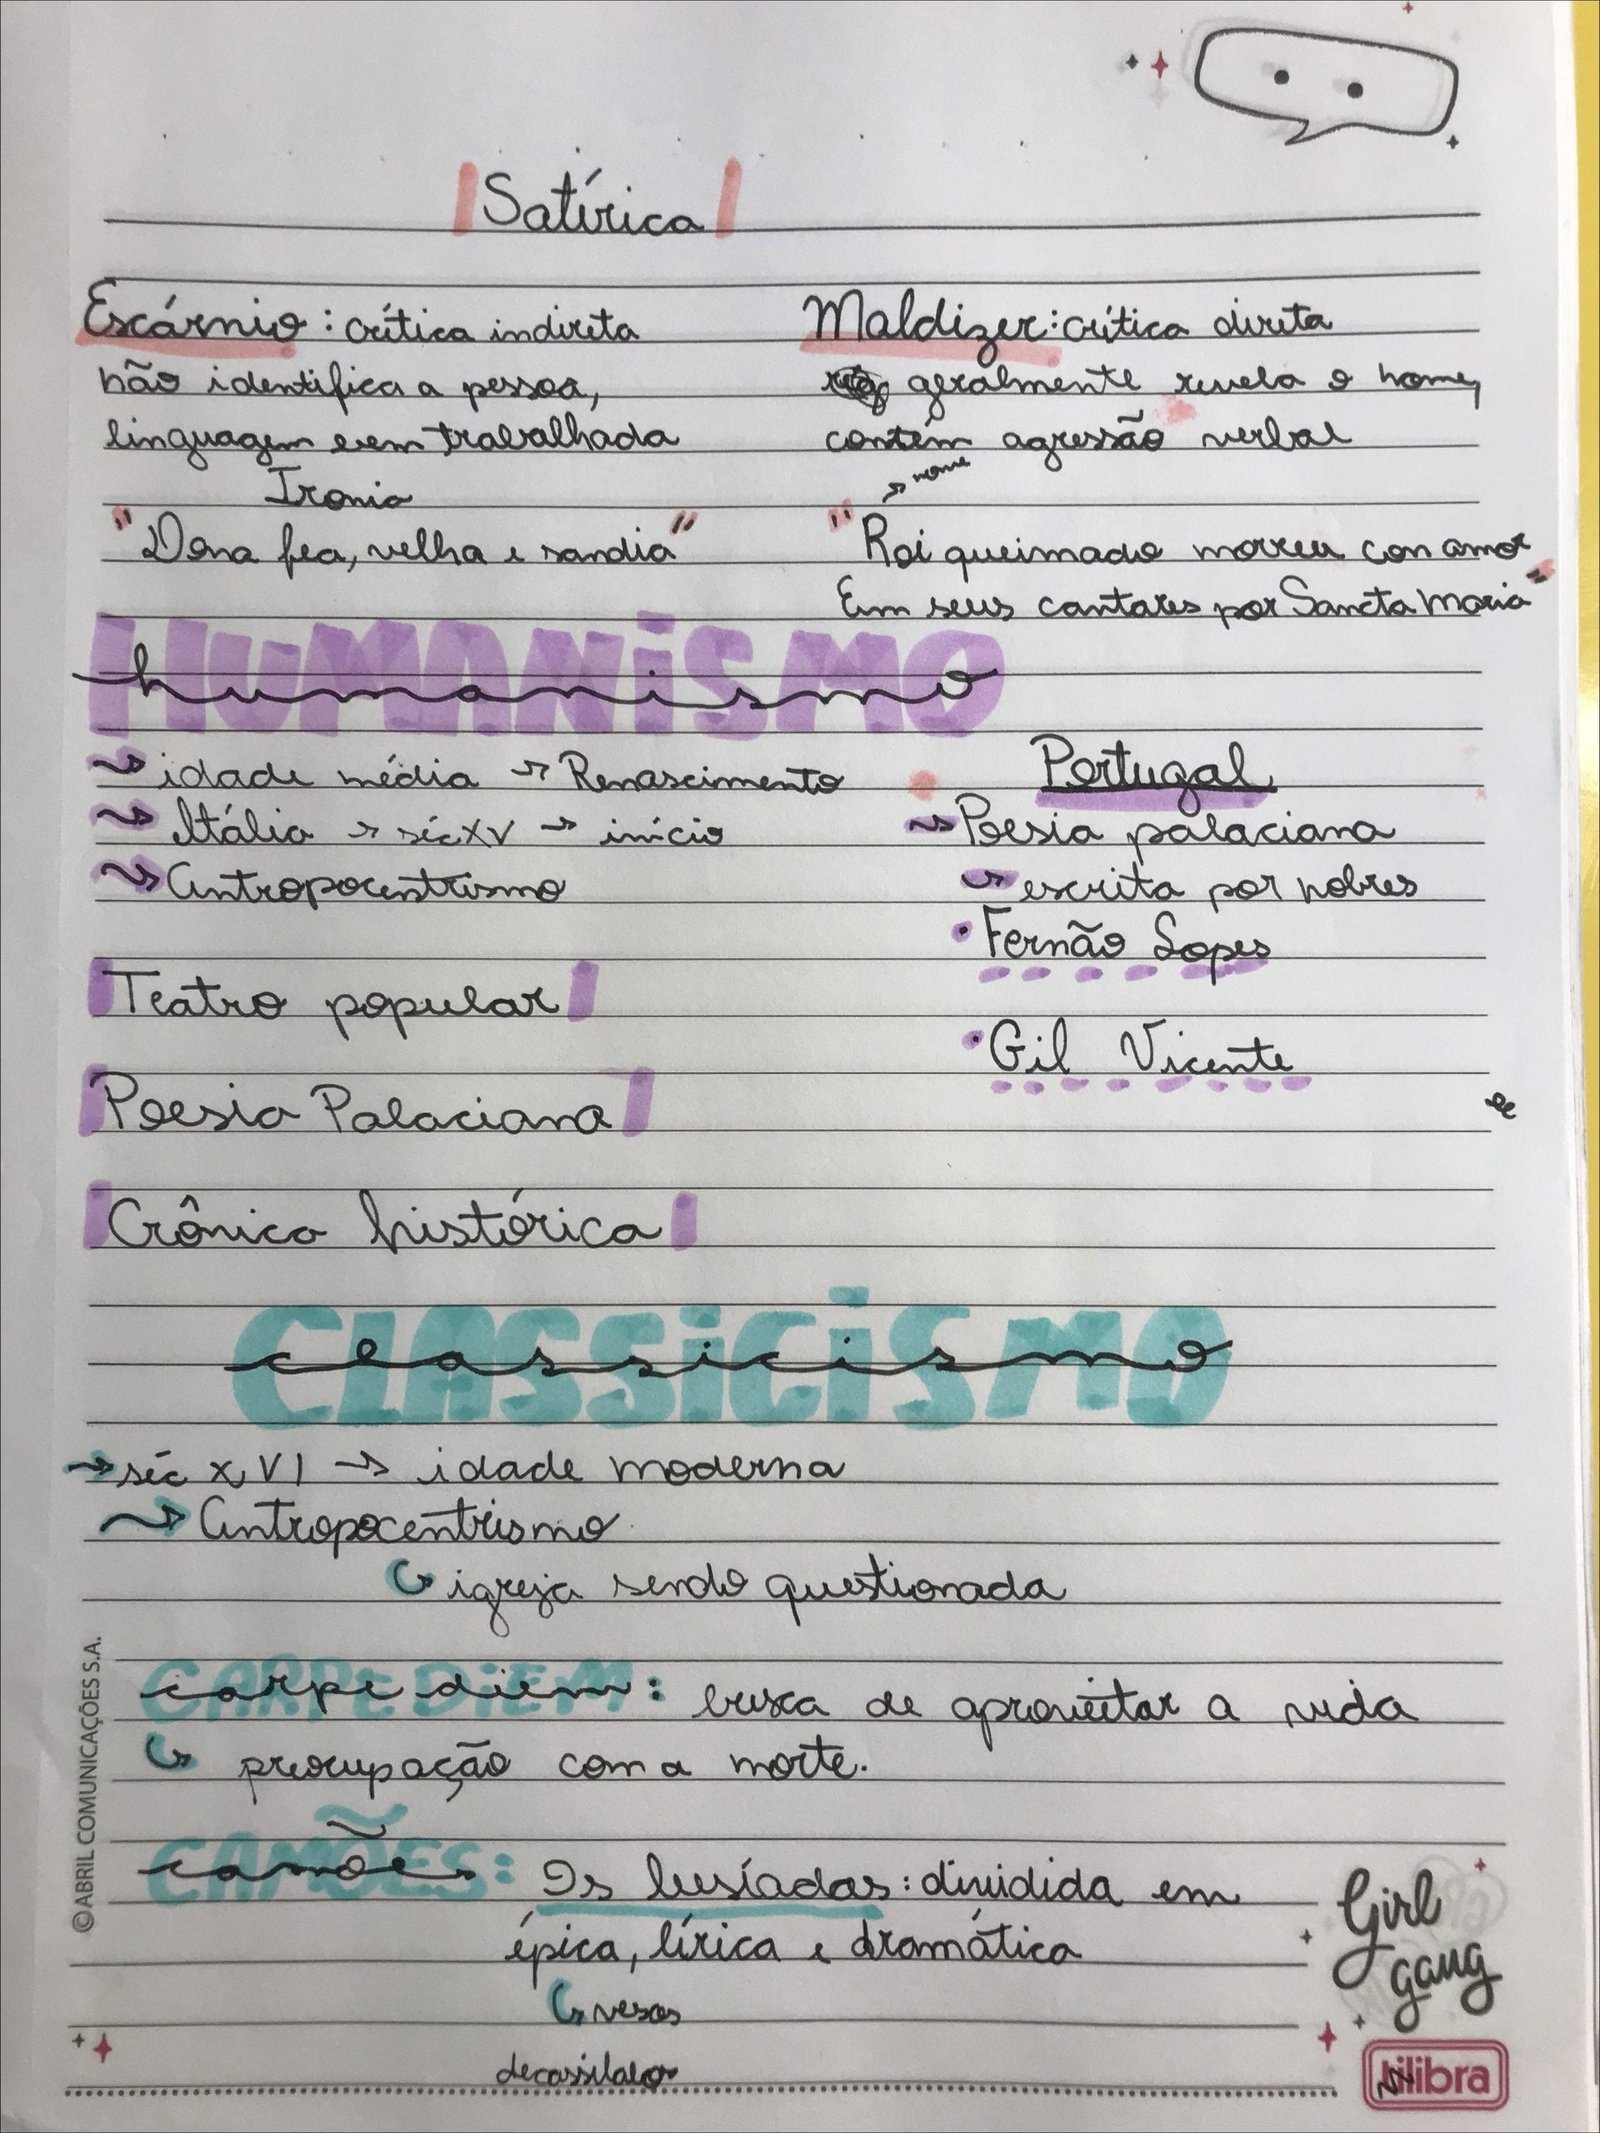 Satírica
Escárnio: crítica indireta
não identifica a pessoa,
linguagem bem trabalhada
Ironia
"Dona fea, velha e sandia"
Maldizer: crítica direta
geralmente revela o nome,
contém agressão verbal
→ nome
"Roi queimado morreu con amor
Em seus cantares por Sancta Maria"
HUMANISMO
humanismo
→ idade média → Renascimento
→ Itália → séc XV → início
→ Antropocentrismo
Teatro popular
Poesia Palaciana
Crônica histórica
Portugal
→ Poesia palaciana
↪ escrita por nobres
• Fernão Lopes
• Gil Vicente
CLASSICISMO
classicismo
→ séc XVI → idade moderna
→ Antropocentrismo
↪ igreja sendo questionada
CARPE DIEM
carpe diem: busca de aproveitar a vida
↪ preocupação com a morte.
CAMÕES:
camões Os lusíadas: dividida em
épica, lírica e dramática
↪ vesos
decassilabo
©ABRIL COMUNICAÇÕES S.A.
Girl
gang
tilibra